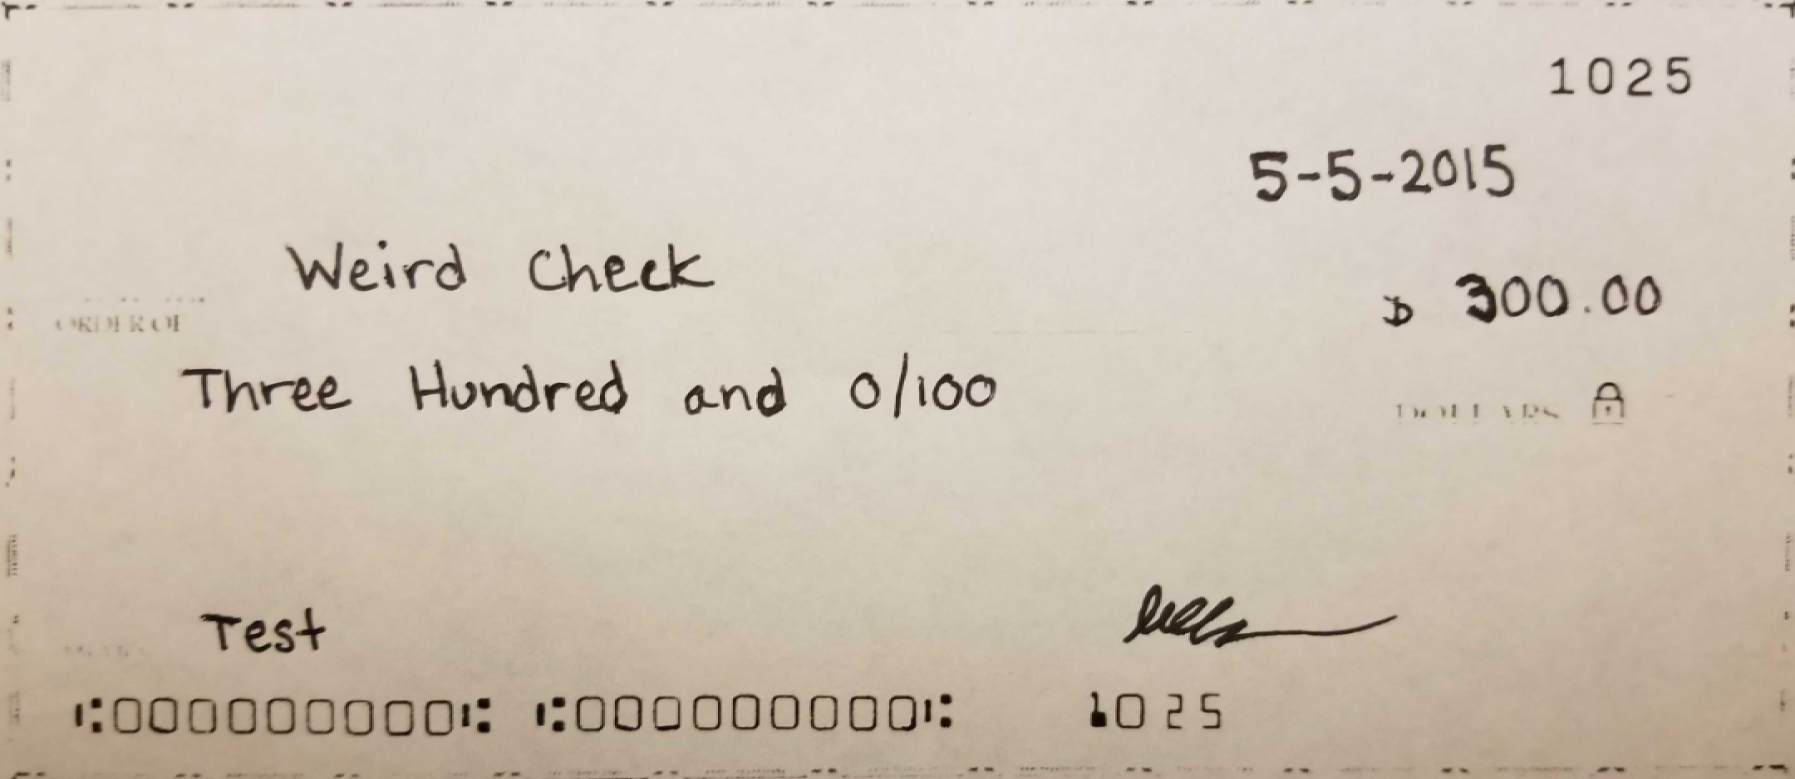 1025
5-5-2015
Weird Check
$ 300.00
ORDER OF
Three Hundred and 0/100
DOLLARS
Test
⑆000000000⑆ ⑆000000000⑆ 1025